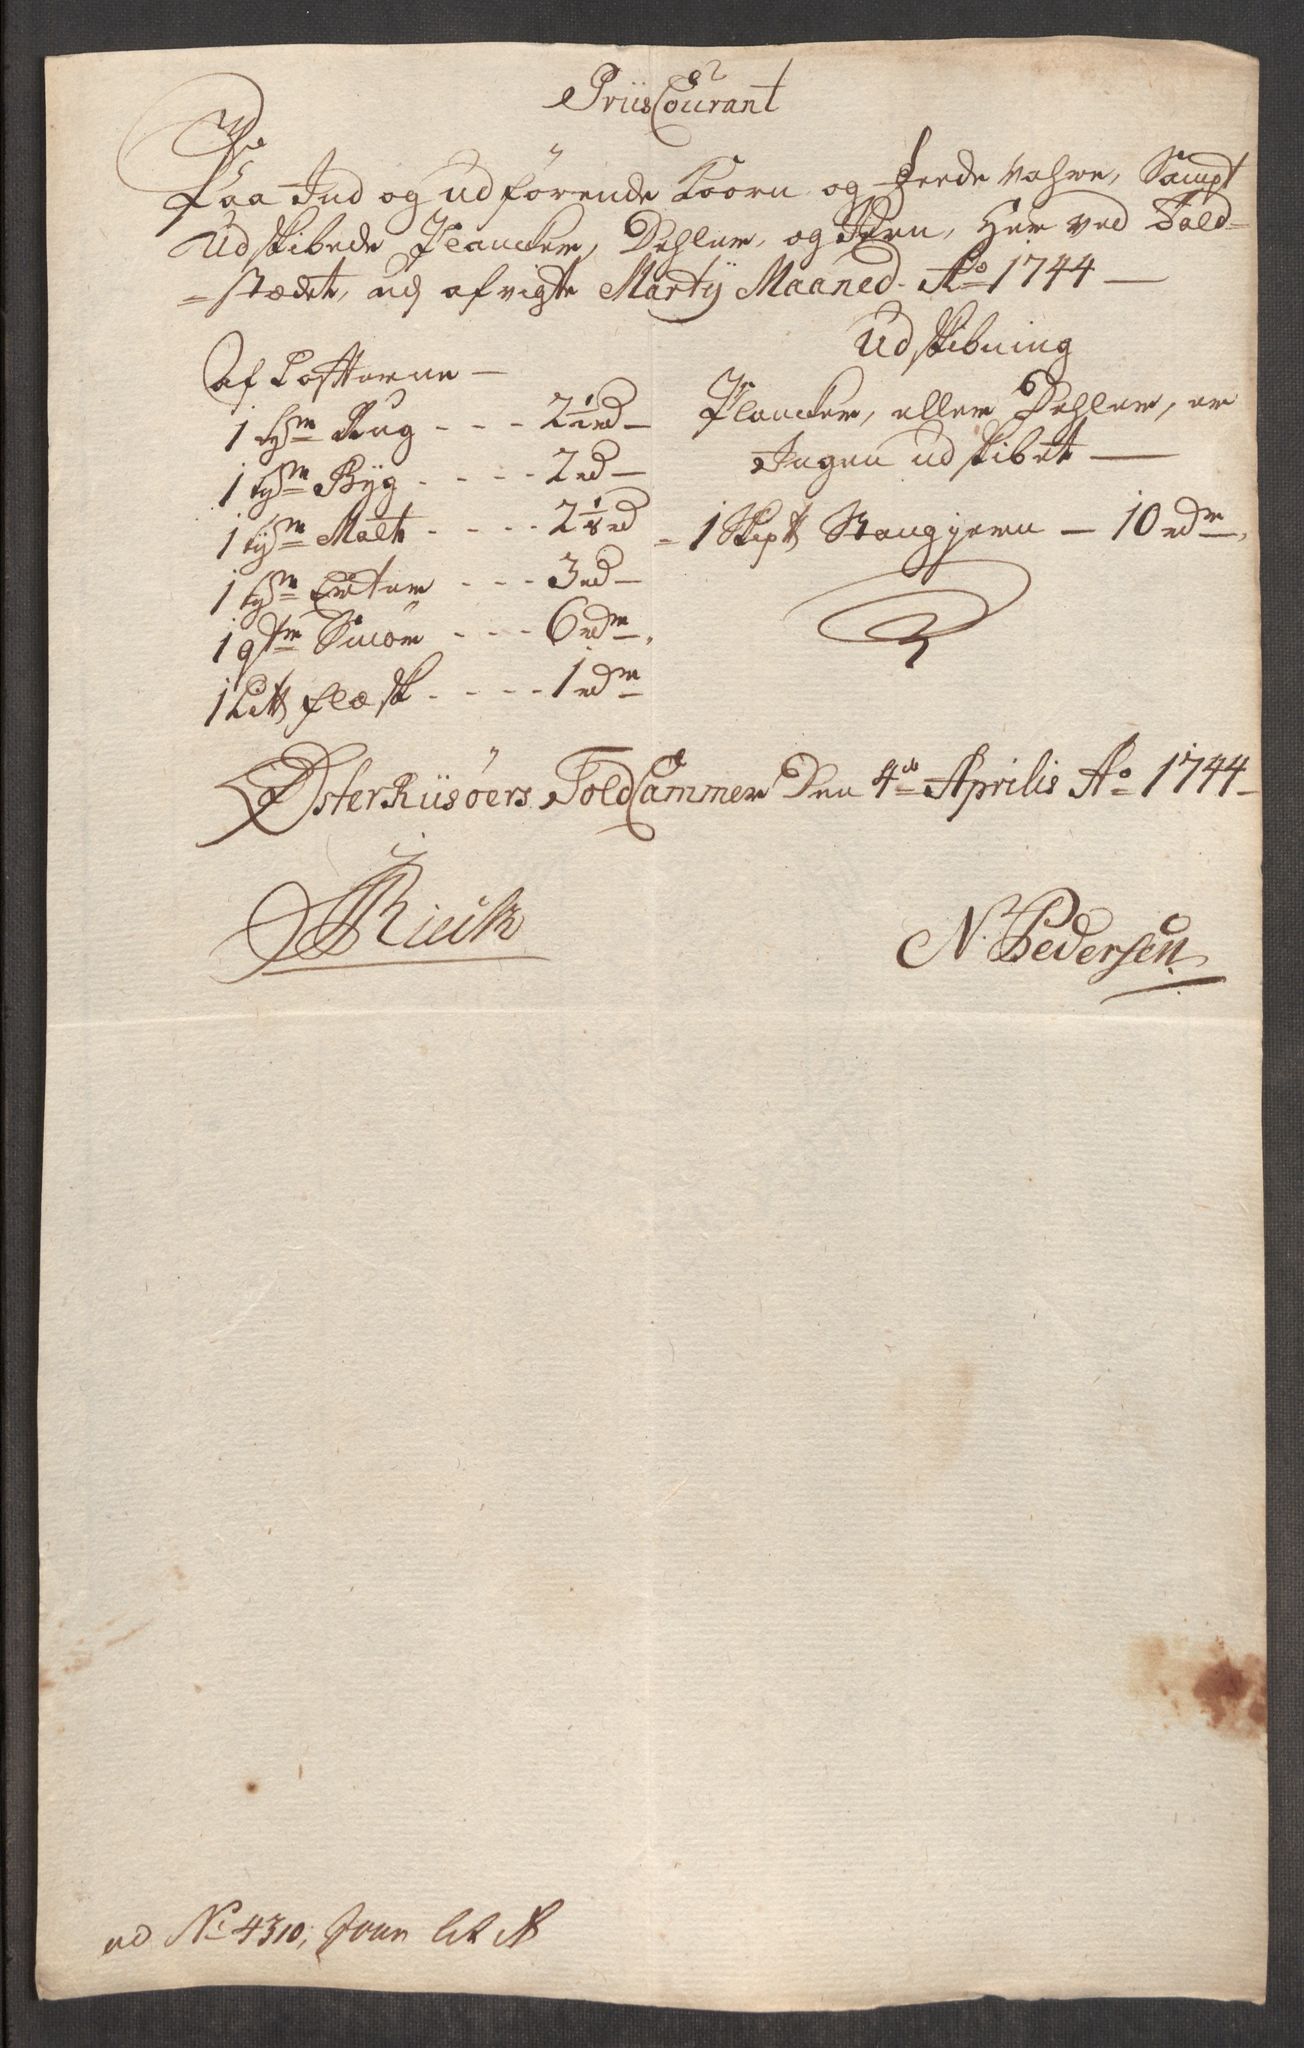 PriisCourant
Paa Ind og udförende Koorn og Feede Vahre, Sampt
Udskibede Plancker, Dehler, og Jern, Her ved Told-
=stædet, udj afvigte Martij Maaned. Ao 1744 —
Af Kosterne —
1 tdr Rug - - - 2½ rd —
1 tdr Byg - - - - 2 rd —
1 tdr Malt - - - - 2⅛ rd
1 tdr Erter - - - 3 rd —
1 qtr Smör - - - 6 rdr.
1 Lit℔ flæsk - - - - 1 rdr
Udskibning
Plancker, eller Dehler, er
Ingen udskibet —
= 1 Skp℔ Stangjern — 10 rdr.
ÖsterRiisöers ToldCammer Den 4de Aprilis Ao 1744 —
N. Pedersen
ad No 4310, Jour lit A